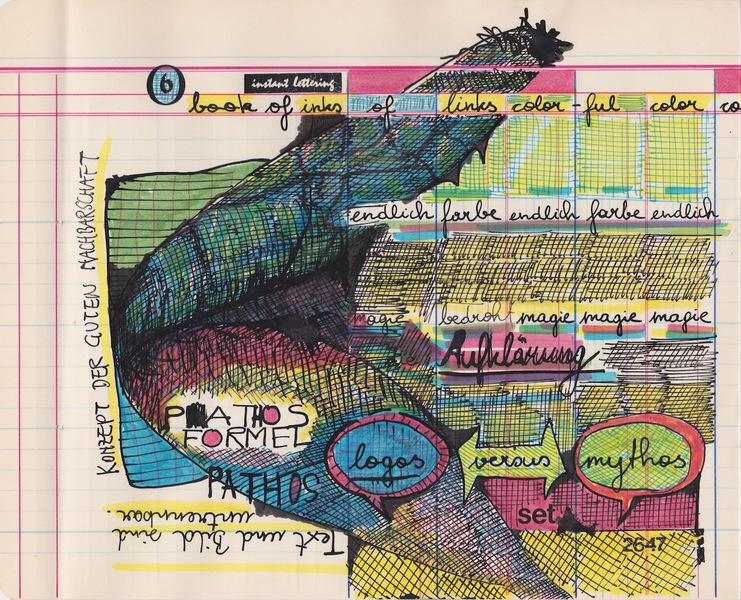 6
instant lettering
book of inks of links color-ful color co
KONZEPT DER GUTEN NACHBARSCHAFT
endlich farbe endlich farbe endlich
magie bedroht magie magie magie
Aufklärung
PATHOS
FORMEL
logos versus mythos
PATHOS
set
2647
Text und Bild sind
untrennbar